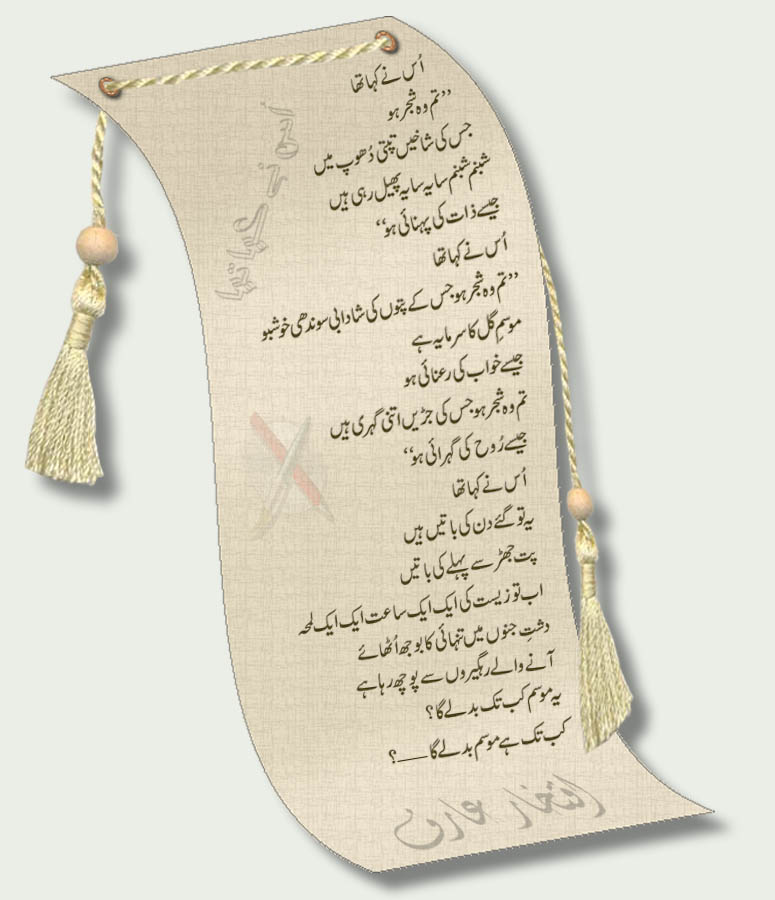 اُس نے کہا تھا
اُس نے کہا تھا
”تم وہ شجر ہو
جس کی شاخیں تپتی دُھوپ میں
شبنم شبنم سایہ سایہ پھیل رہی ہیں
جیسے ذات کی پہنائی ہو“
اُس نے کہا تھا
”تم وہ شجر ہو جس کے پتوں کی شادابی سوندھی خوشبو
موسمِ گل کا سرمایہ ہے
جیسے خواب کی رعنائی ہو
تم وہ شجر ہو جس کی جڑیں اتنی گہری ہیں
جیسے رُوح کی گہرائی ہو“
اُس نے کہا تھا
یہ تو گئے دن کی باتیں ہیں
پت جھڑ سے پہلے کی باتیں
اب تو زیست کی ایک ایک ساعت ایک ایک لمحہ
دشتِ جنوں میں تنہائی کا بوجھ اُٹھائے
آنے والے رہگیروں سے پوچھ رہا ہے
یہ موسم کب تک بدلے گا؟
کب تک ہے موسم بدلے گا ——؟
افتخار عارف